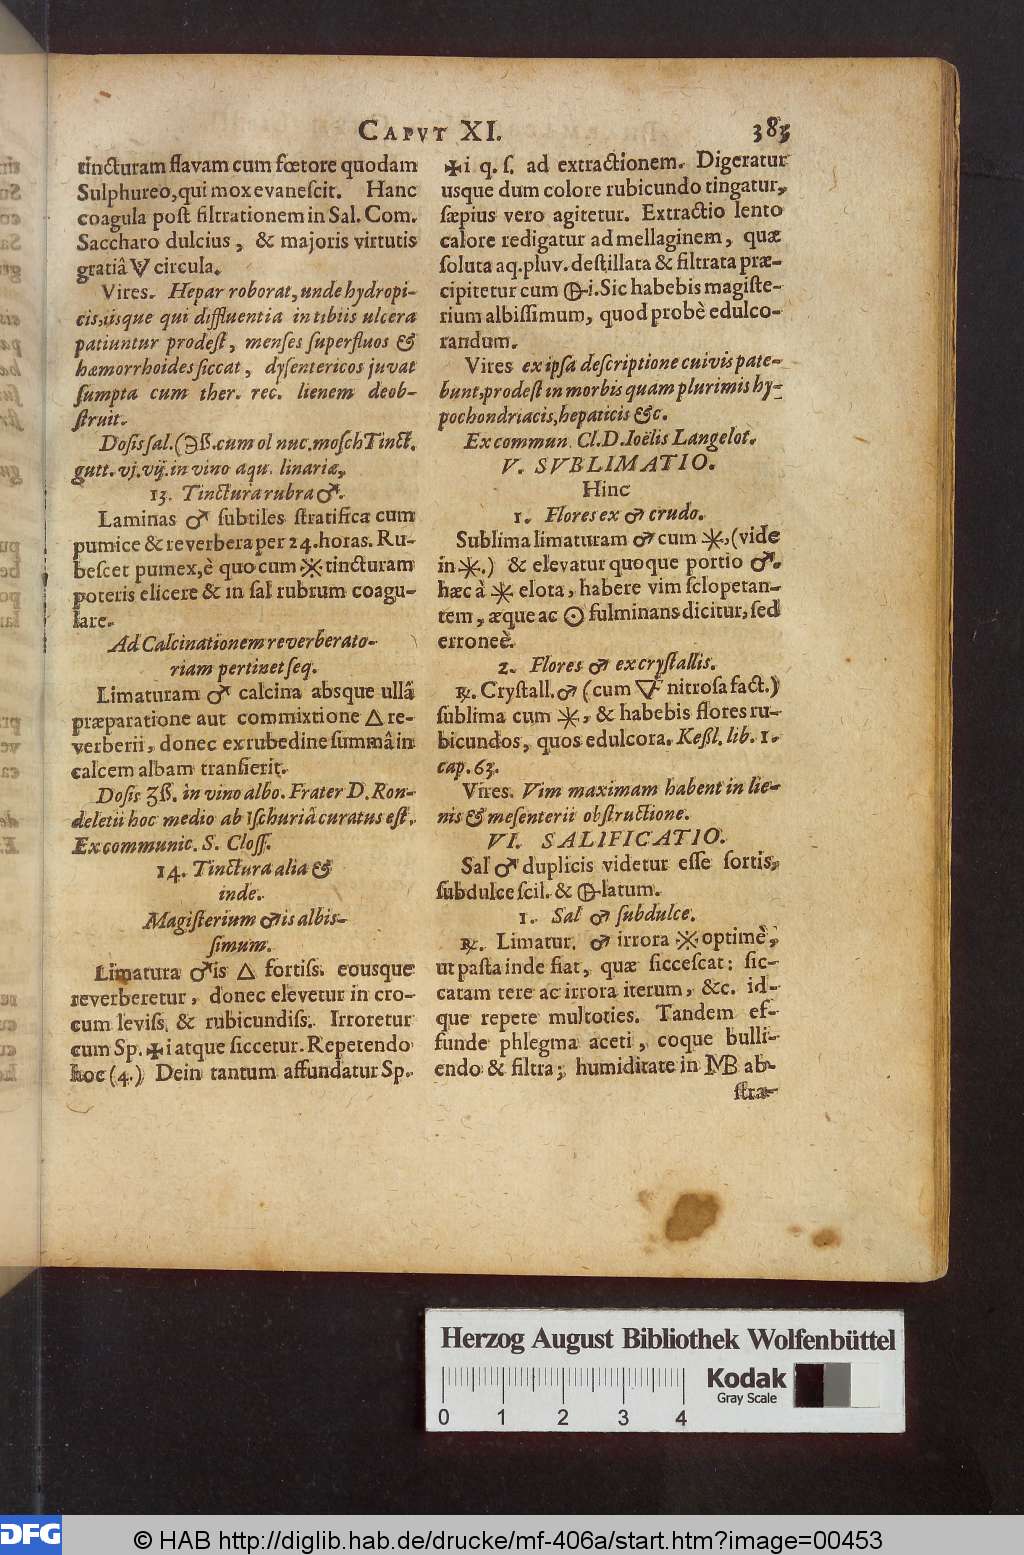 CAPVT XI. 383
tincturam flavam cum fœtore quodam
Sulphureo, qui mox evanescit. Hanc
coagula post filtrationem in Sal. Com.
Saccharo dulcius, & majoris virtutis
gratiâ 🜆 circula.
Vires. Hepar roborat, unde hydropi-
cis, iisque qui diffluentia in tibiis ulcera
patiuntur prodest, menses superfluos &
hæmorrhoides siccat, dysentericos juvat
sumpta cum ther. rec. lienem deob-
struit.
Dosis sal. (℈ß. cum ol nuc. mosch Tinct.
gutt. vj. vij. in vino aqu. linariæ.
13. Tinctura rubra ♂.
Laminas ♂ subtiles stratifica cum
pumice & reverbera per 24. horas. Ru-
bescet pumex, è quo cum ※ tincturam
poteris elicere & in sal rubrum coagu-
lare.
Ad Calcinationem reverberato-
riam pertinet seq.
Limaturam ♂ calcina absque ullâ
præparatione aut commixtione △ re-
verberii, donec ex rubedine summâ in
calcem albam transierit.
Dosis ʒß. in vino albo. Frater D. Ron-
deletii hoc medio ab Ischuriâ curatus est.
Ex communic. S. Closs.
14. Tinctura alia &
inde.
Magisterium ♂is albis-
simum.
Limatura ♂is △ fortiss. eousque
reverberetur, donec elevetur in cro-
cum leviss. & rubicundiss. Irroretur
cum Sp. ✠i atque siccetur. Repetendo
hoc (4.) Dein tantum affundatur Sp.
✠i q. s. ad extractionem. Digeratur
usque dum colore rubicundo tingatur,
sæpius vero agitetur. Extractio lento
calore redigatur ad mellaginem, quæ
soluta aq. pluv. destillata & filtrata præ-
cipitetur cum 🜖i. Sic habebis magiste-
rium albissimum, quod probè edulco-
randum.
Vires ex ipsa descriptione cuivis pate-
bunt, prodest in morbis quam plurimis hy-
pochondriacis, hepaticis &c.
Ex commun. Cl. D. Ioëlis Langelot.
V. SVBLIMATIO.
Hinc
1. Flores ex ♂ crudo.
Sublima limaturam ♂ cum ✶, (vide
in ✶.) & elevatur quoque portio ♂.
hæc à ✶ elota, habere vim sclopetan-
tem, æque ac ☉ fulminans dicitur, sed
erroneè.
2. Flores ♂ ex crystallis.
℞. Crystall. ♂ (cum 🜅 nitrosa fact.)
sublima cum ✶, & habebis flores ru-
bicundos, quos edulcora. Keßl. lib. 1.
cap. 63.
Vires. Vim maximam habent in lie-
nis & mesenterii obstructione.
VI. SALIFICATIO.
Sal ♂ duplicis videtur esse sortis,
subdulce scil. & 🜖latum.
1. Sal ♂ subdulce.
℞. Limatur. ♂ irrora ※ optimè,
ut pasta inde fiat, quæ siccescat: sic-
catam tere ac irrora iterum, &c. id-
que repete multoties. Tandem ef-
funde phlegma aceti, coque bulli-
endo & filtra; humiditate in MB ab-
stra-
Herzog August Bibliothek Wolfenbüttel
Kodak
Gray Scale
0 1 2 3 4
DFG
© HAB http://diglib.hab.de/drucke/mf-406a/start.htm?image=00453